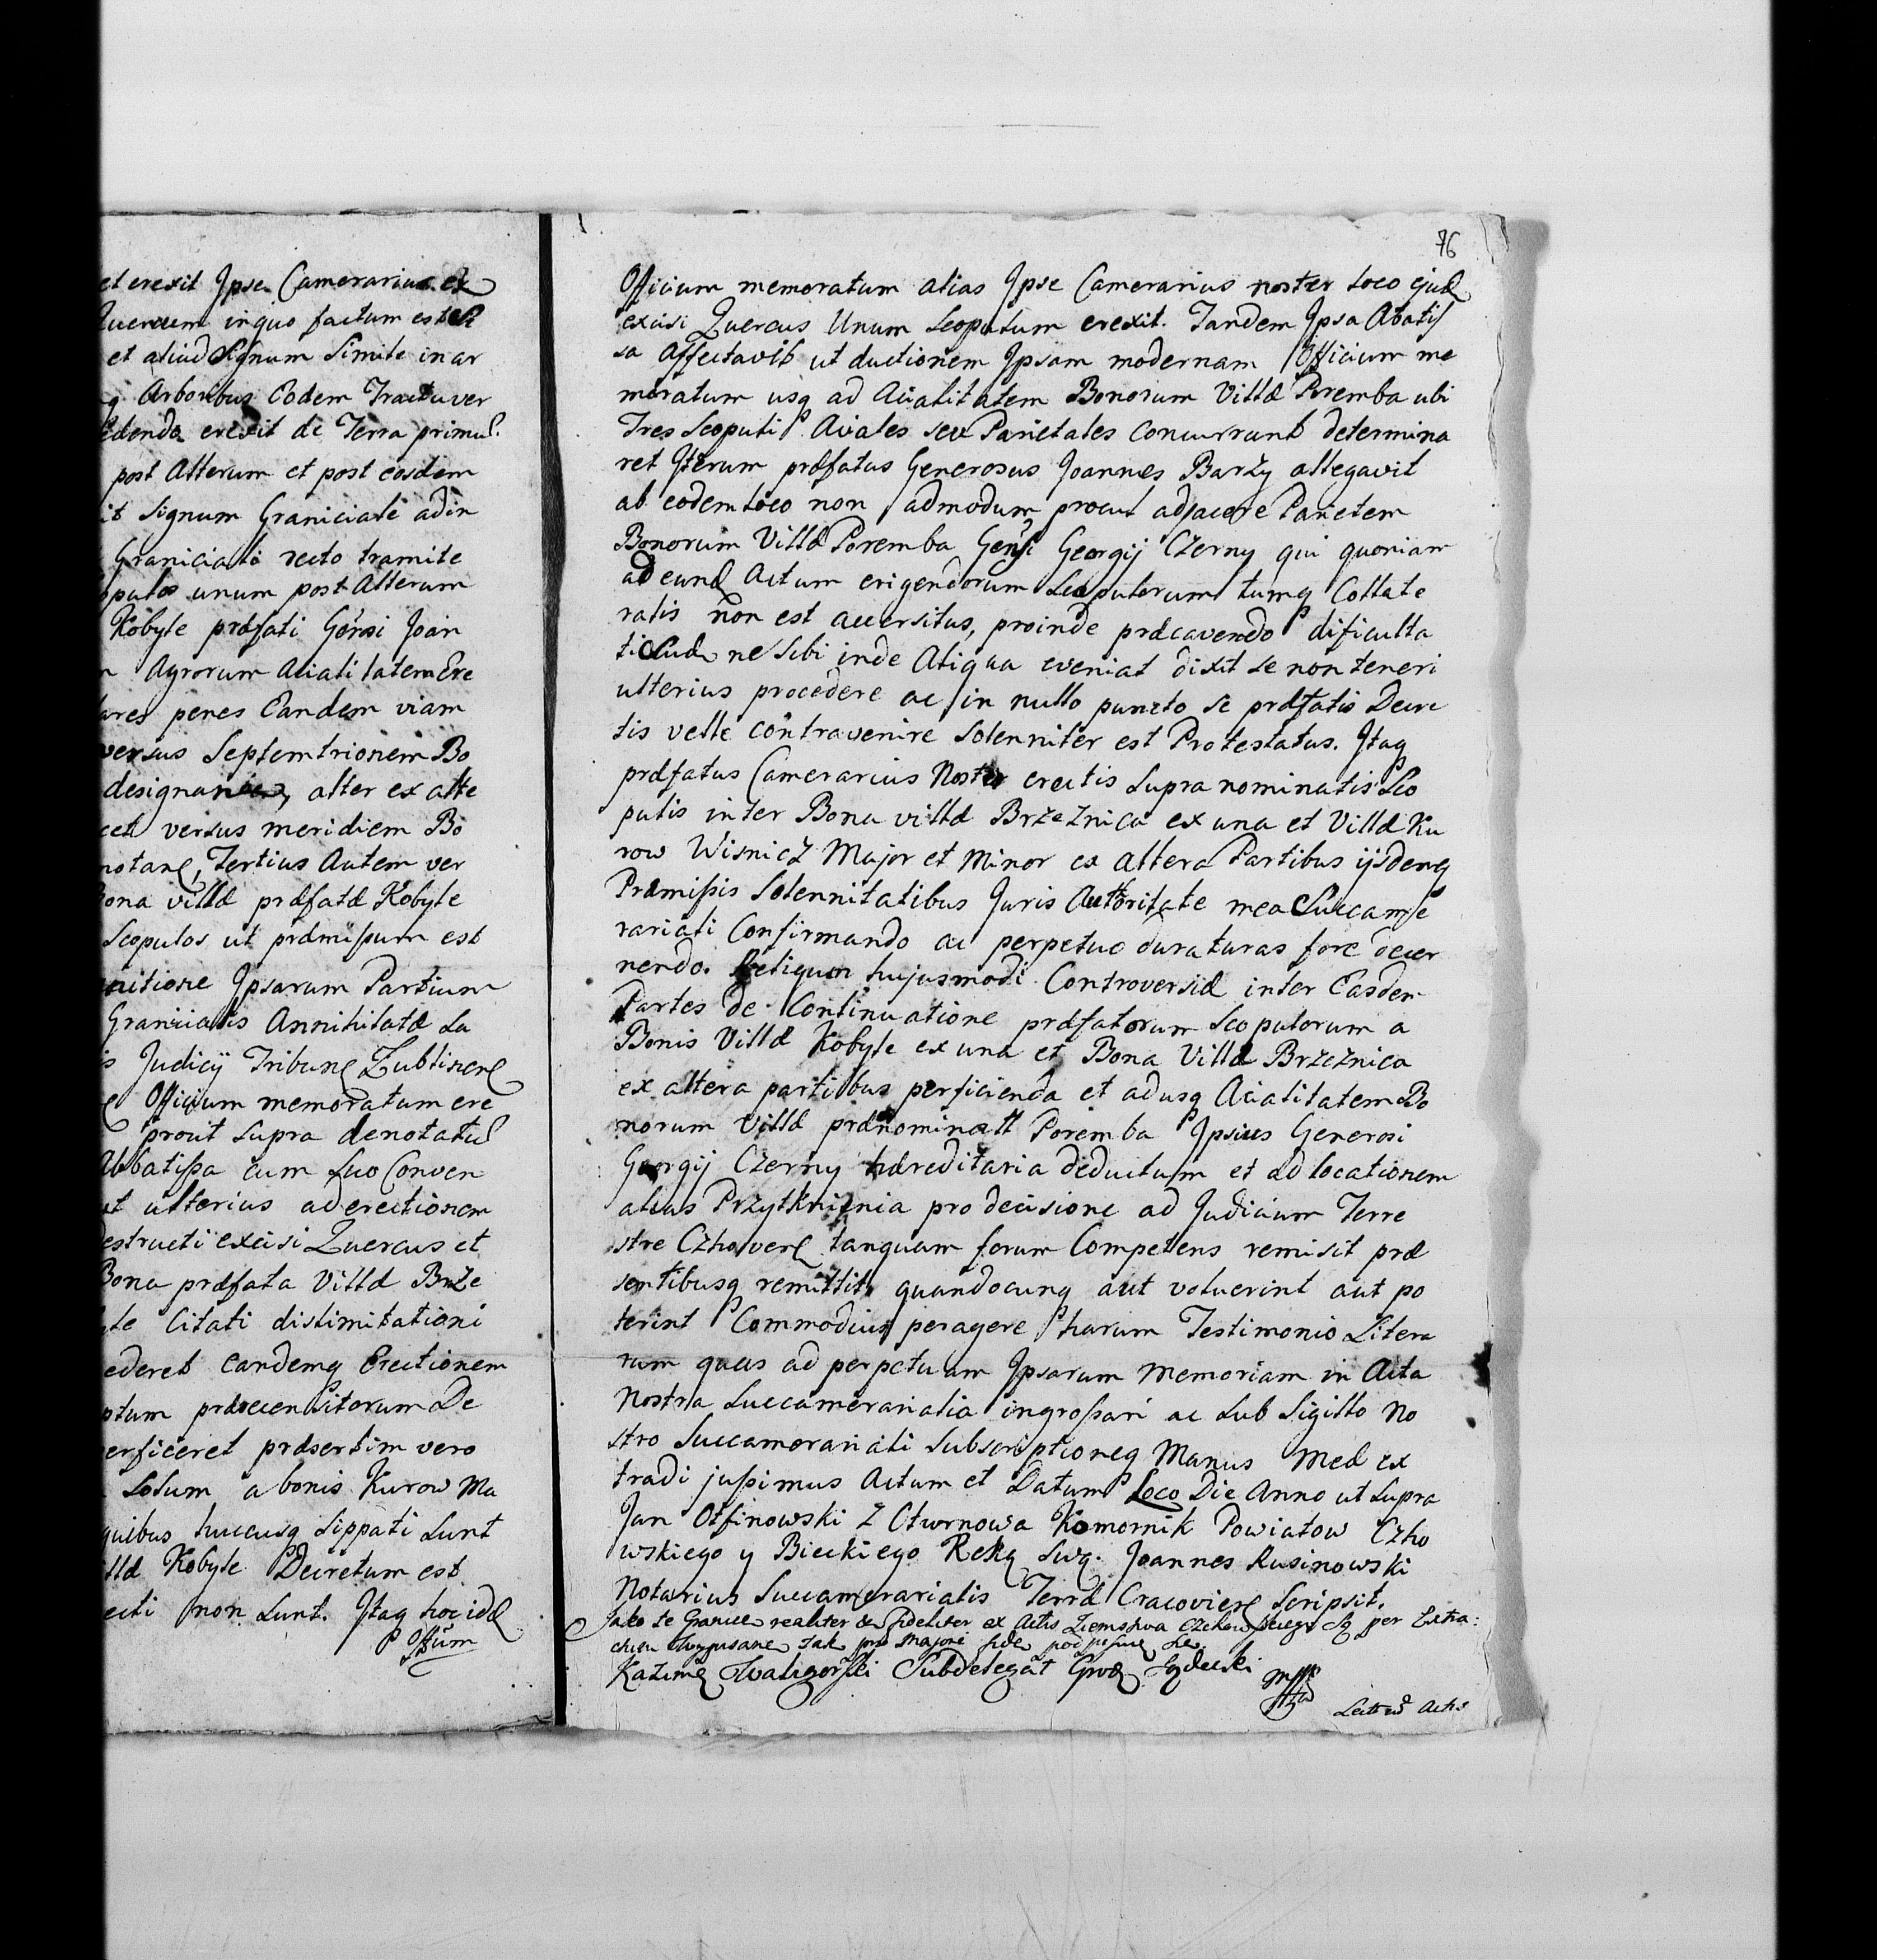 et erexit Ipse Camerarius et
Quercum in quo factum est
et aliud Signum Simile in ar
Arboribus Eodem Tractu ver
erexit de Terra primuɫ.
post Alterum et post eosdem
it Signum Graniciale ad in
Graniciali recto tramite
pulos unum post Alterum
Kobyle præfati Gensi Joan
Agrorum Aciali tatem Ere
ares penes Eandem viam
versus Septemtrionem Bo
alter ex alte
cet versus meridiem Bo
notanɫ, Tertius Autem ver
Bona villæ præfatæ Kobyle
Scopulos ut præmissum est
nitione Ipsarum Partium
Granicialis Annihilatæ La
is Judicÿ Tribunɫ Lublinenɫ
Officium memoratum ere
prout supra denotatuɫ
Abbatissa cum suo Conven
ut ulterius ad erectionem
estructi excisi Quercus et
Bona præfata Villæ Brze
yle Citati dislimitationi
ederet eandemq Erectionem
ptum præecensitorum De
erficeret præsertim vero
Solum a bonis Kurow Ma
quibus huccusq Sippati Sunt
illæ Kobyle Decretum est
ecti non sunt. Itaq hoc idɫ
Offûm
76
Officium memoratum alias Ipse Camerarius noster loco ejuɫ
excisi Quercus Unum Scopulum erexit. Tandem Ipsa Abatis
sa Affectavit ut ductionem Ipsam modernam Officium me
moratum usq ad Acialitatem Bonorum Villæ Poremba ubi
Tres Scopuli Aciales seu Parietales Concurrunt determina
ret Iterum præfatus Generosus Joannes Barzy allegavit
ab eodem loco non admodum procul adjacere Parietem
Bonorum Villæ Poremba Gensi Georgij Czerny qui quoniam
ad eunɫ Actum erigendorum Scopulorum tumq Collate
ralis non est accersitus, proinde præcavendo dificulta
ti ne sibi inde Aliqua eveniat dixit se non teneri
ulterius procedere ac in nullo puncto se præfatis Decre
tis velle contravenire Solenniter est Protestatus. Itaq
præfatus Camerarius Noster erectis supra nominatis Sco
pulis inter Bona villæ Brzeznica ex una et Villæ Ku
row Wisnicz Major et Minor ex altera Partibus ijsdemq
Præmissis Solennitatibus Juris Authoritate mea Succame
rariali Confirmando ac perpetuo duraturas fore decer
nendo. Reliquum hujusmodi Controversiæ inter Easdem
Partes de Continuatione præfatorum Scopulorum a
Bonis Villæ Kobyle ex una et Bona Villæ Brzeznica
ex altera partibus perficienda et adusq Acialitatem Bo
norum Villæ prænominatæ Poremba Ipsius Generosi
Georgij Czerny hæreditaria deductum et ad locationem
alias Przytknienia pro decisione ad Judicium Terre
stre Czhovenɫ tanquam forum Competens remisit præ
sentibusq remittit, quandocunq aut voluerint aut po
terint Commodius peragere harum Testimonio Litera
rum quas ad perpetuam Ipsarum Memoriam in Acta
Nostra Succamerarialia ingrossari ac sub Sigillo No
stro Succamerariali subscriptioneq Manus Meæ ex
tradi jussimus Actum et Datum Loco Die Anno ut supra
Jan Otfinowski z Otwrnowa Komornik Powiatow Czho
wskiego y Bieckiego Ręką swą. Joannes Rusinowski
Notarius Succamerarialis Terræ Cracovienɫ Scripsit.
Jako te Granice realiter & fideliter ex Actis Ziemstwa Czchowskiego są per Extra:
chm wypisane tak pro majori fide podpisuie się
Kazimɫ Waligorski Subdelegat Grodɫ Sądecki
Lectũ Actis